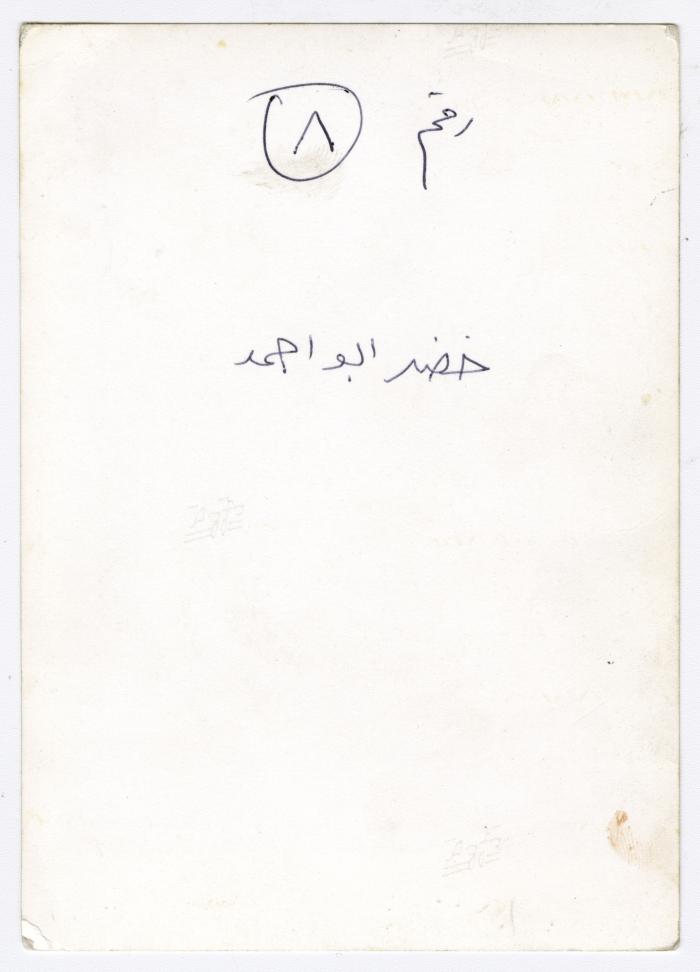 رقم ٨
خضر ابو احمد